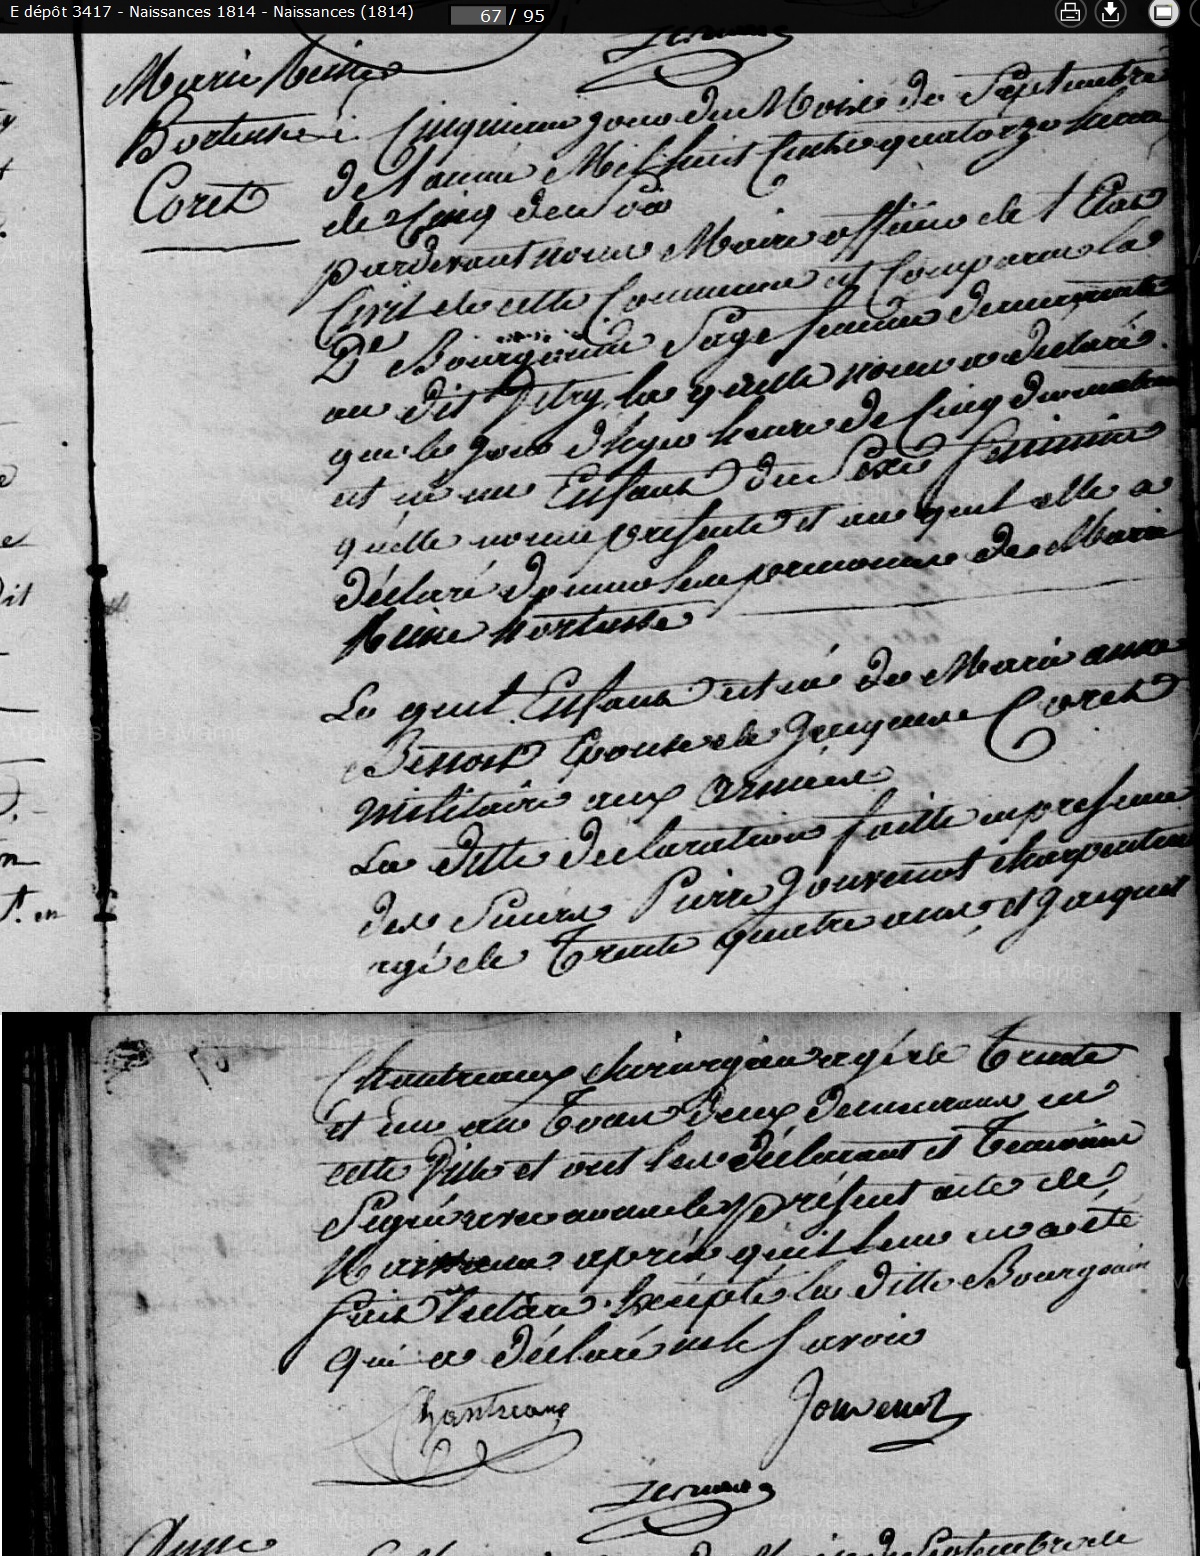 E dépôt 3417 - Naissances 1814 - Naissances (1814) 67 / 95
Marie Reine
Hortense
Coret
Cinquieme jour du Mois de Septembre
de l'année Mil huit Cents quatorze heure
de Cinq du Soir
pardevant nous Maire officier de l'Etat
Civil de cette Commune est Comparu la
De Bourgouin Sage femme demeurante
au dit Vitry, la quelle nous a déclaré
que le jour d'huy heure de Cinq du matin
est né un Enfant du Sexe feminin
qu'elle nous presente et au quel elle a
déclaré donner les prenoms de Marie
Reine hortense
Le quel Enfant est né de Marie anne
Benoit Epouse de Jacques Coret
militaire aux armées
La ditte déclaration faitte en presence
des Sieurs Pierre Jouvenot charpentier
agé de Trente quatre ans, et Jacques
Chantreaux chirurgien agé de Trente
et un an Tous deux demeurans en
cette Ville et ont les déclarant et Temoins
Signé avec nous le présent acte de
Naissance après qu'il leur en a été
fait lecture. Excepté la ditte Bourgouin
qui a déclaré ne le Savoir
Chantreaux
Jouvenot
Anne